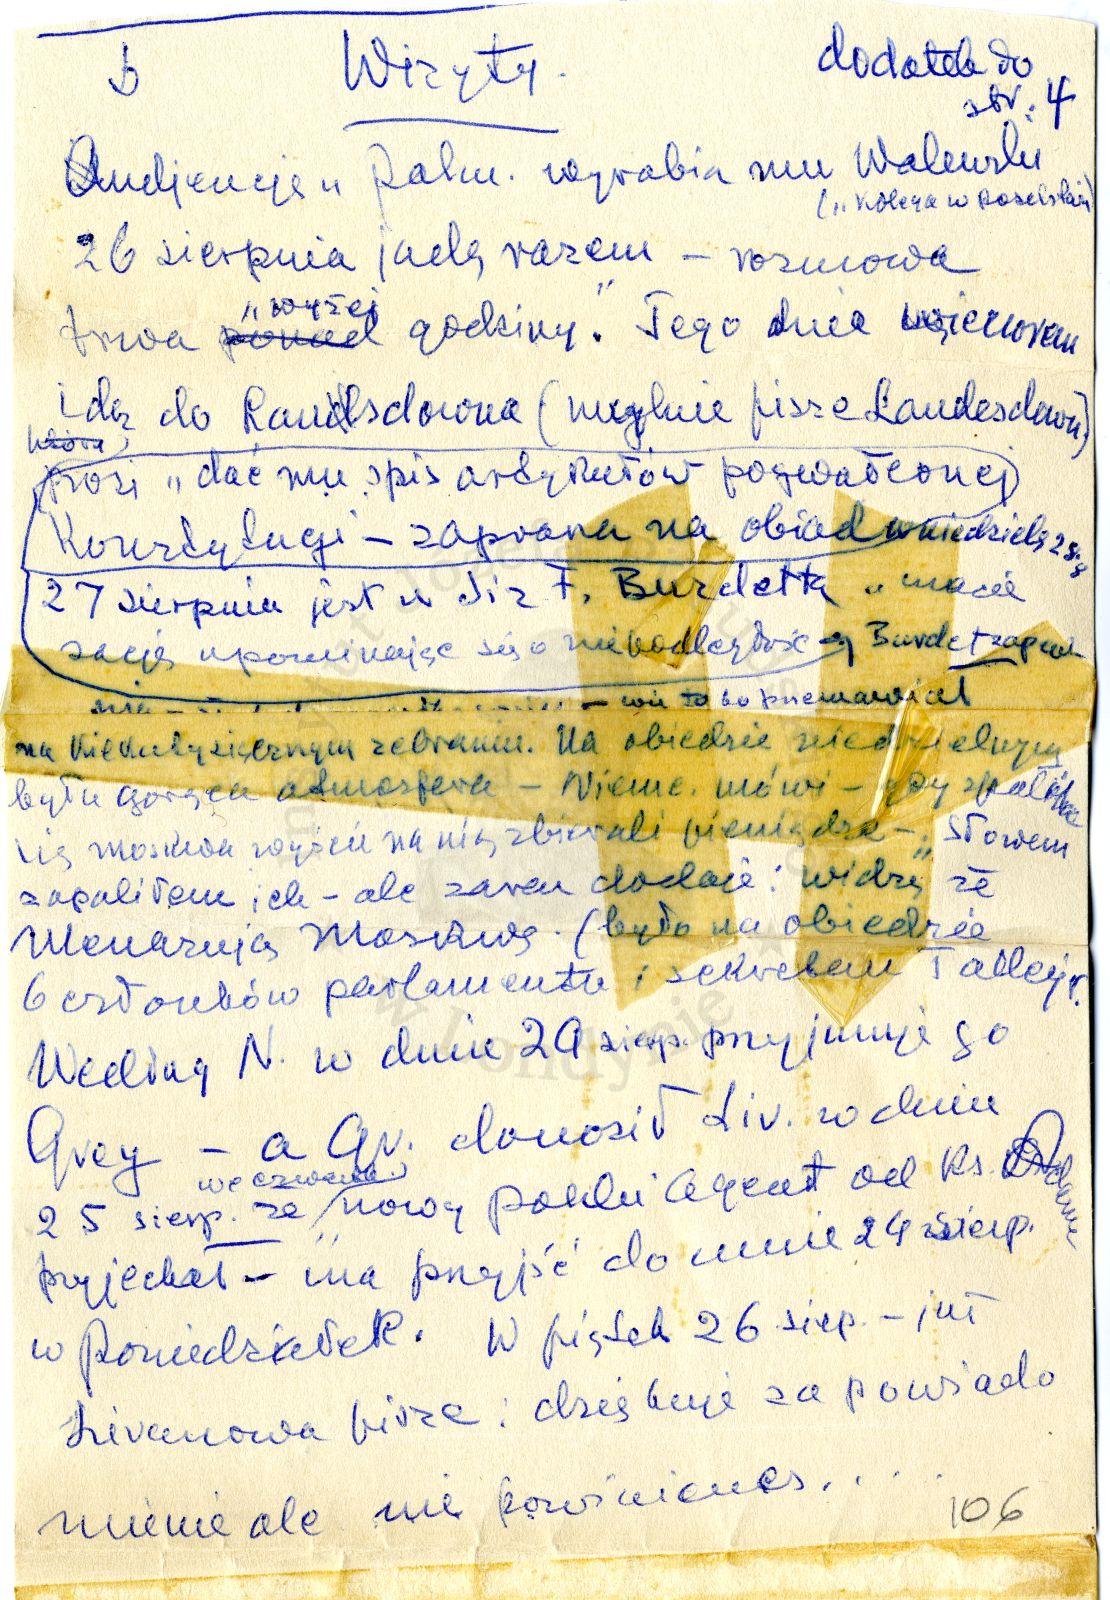 b Wizyty. dodatek do
str: 4
Audjencję u Palm. wyrabia mu Walewski
("Kolega w poselstwie)
26 sierpnia jadą razem – rozmowa
trwa ponad "wyżej godziny." Tego dnia wieczorem
idą do Landsdowna (mylnie pisze Landesdown)
która
prosi "dać mu spis artykułów pogwałconej
Konstytucji – zaprasza na obiad w niedzielę 28.8
27 sierpnia jest u Sir F. Burdetta
upominając się o niepodległość Burdet
– wie to bo przemawiał
na kilkutysięcznym zebraniu. Na obiedzie niedzielnym
była gorąca atmosfera – Niemc. mówi – gdy spaliła
się Moskwa wyście na nią zbierali pieniądze –, słowem
zapaliłem ich – ale zaraz dodaje: "widzę że
Menażują Moskwę. (było na obiedzie
6 członków parlamentu i sekretarz Talleyr.
Według N. w dniu 29 sierp. przyjmuje go
Grey – a Gr. donosił Liv. w dniu
we czwartek
25 sierp. że "nowy polski agent od Ks. Adama
przyjechał – ma przyjść do mnie 29 sierp.
w Poniedziałek. W piątek 26 sierp. – już
Lievenowa pisze: dziękuję za powiado
mienie ale nie powinieneś....
106